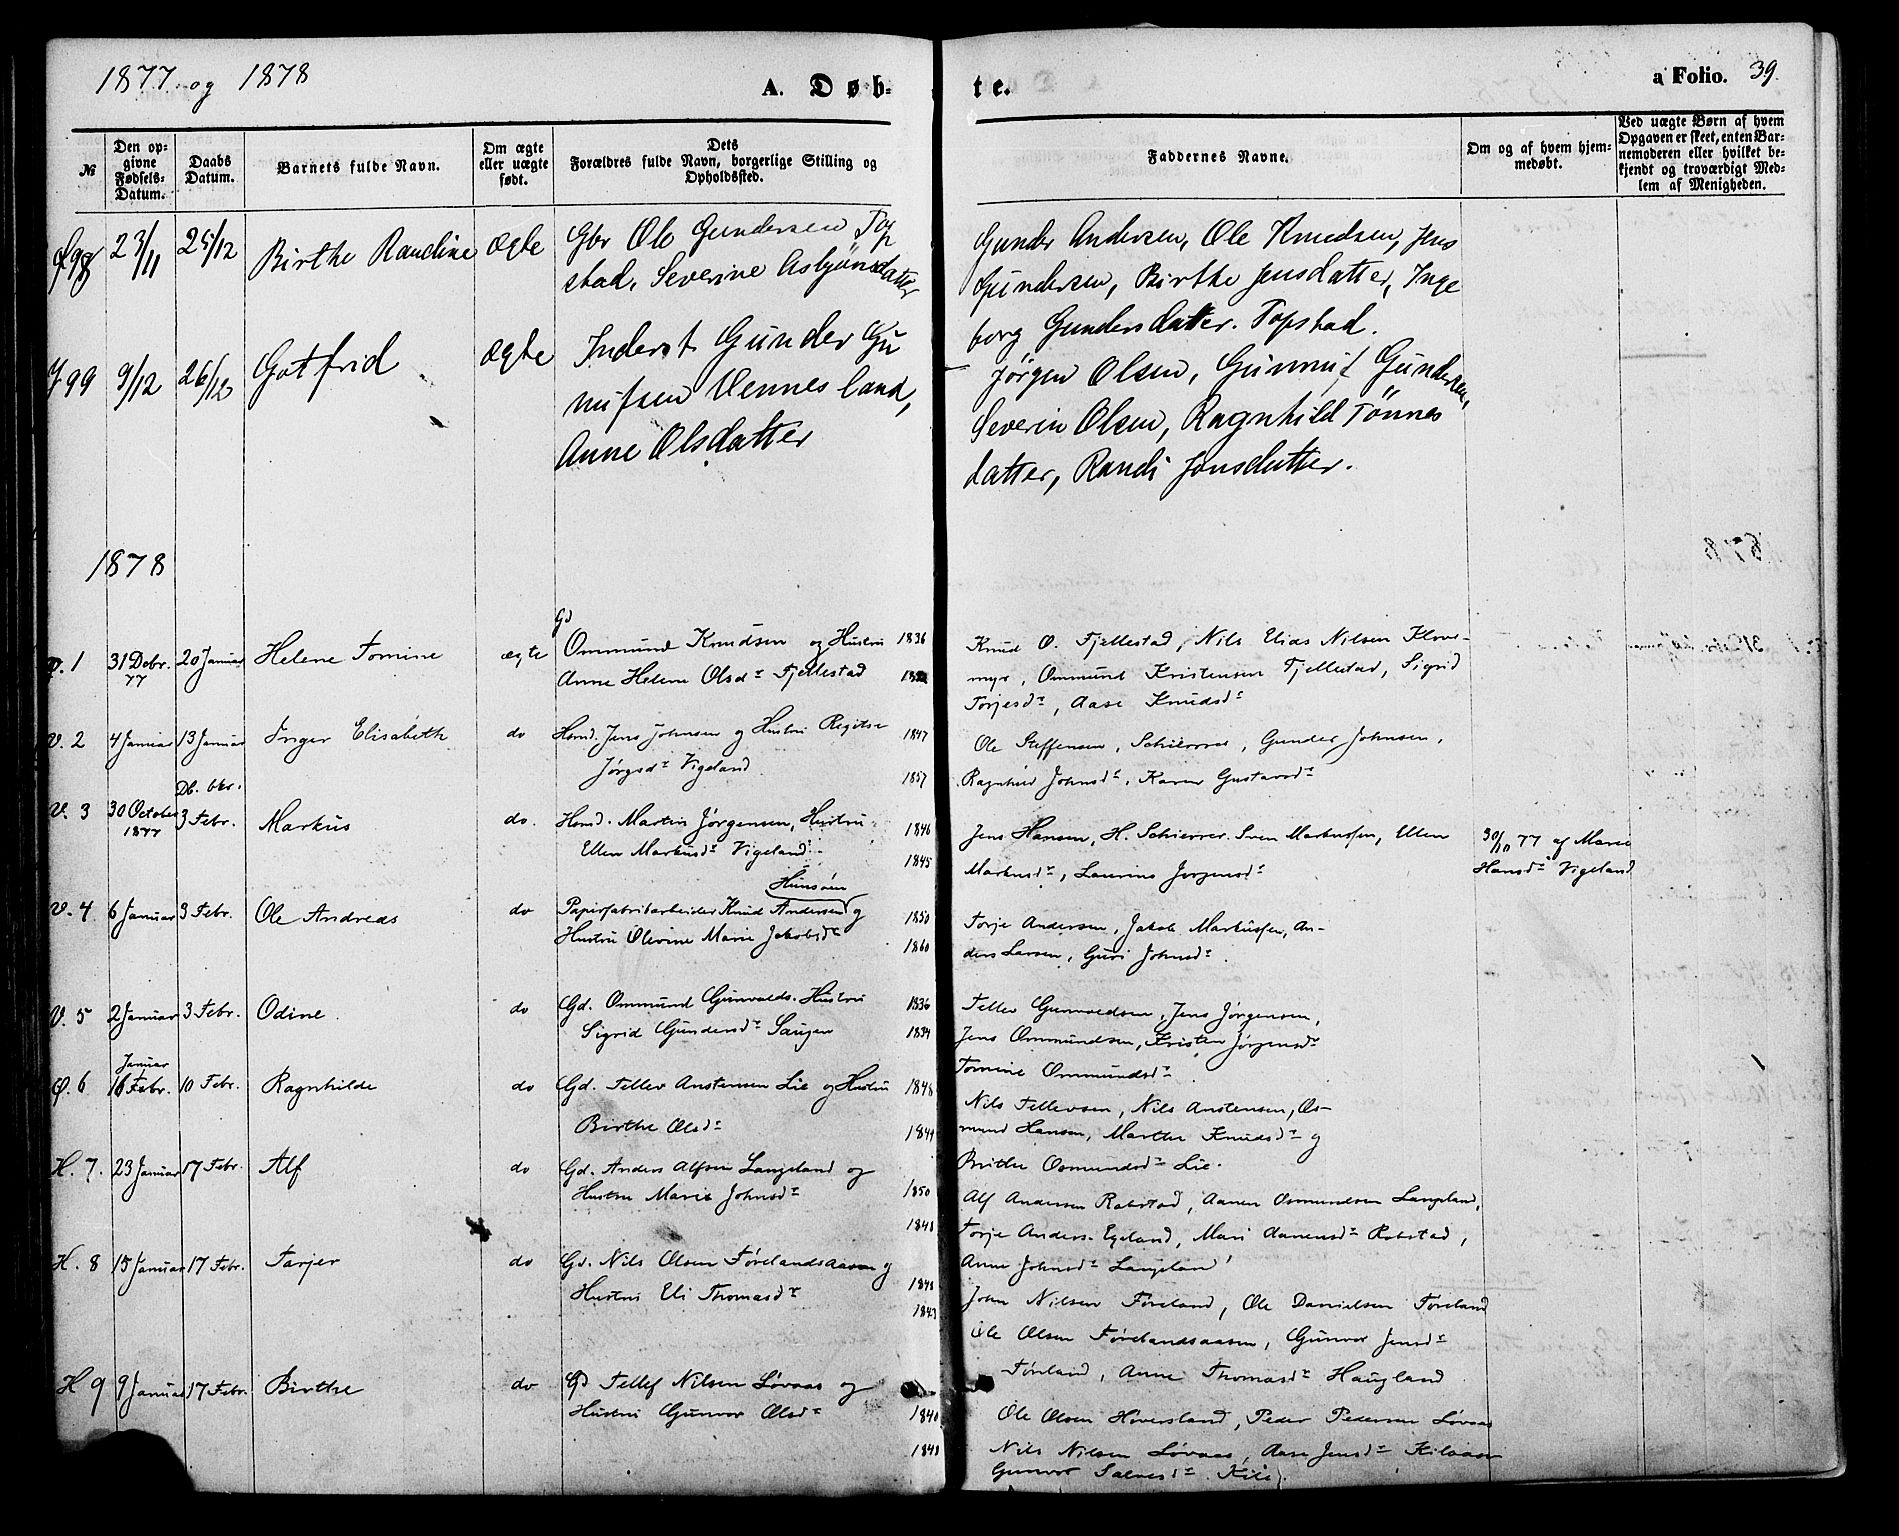 1877 og 1878
A. Døb-
te.
a Folio. 39.
№
Den op-
givne
Fødsels-
Datum.
Daabs
Datum.
Barnets fulde Navn.
Om ægte
eller uægte
født.
Dets
Forældres fulde Navn, borgerlige Stilling og
Opholdssted.
Faddernes Navne.
Om og af hvem hjem-
medøbt.
Ved uægte Børn af hvem
Opgaven er skeet, enten Bar-
nemoderen eller hvilket be-
kjendt og troværdigt Med-
lem af Menigheden.
98 23/11 25/12 Birthe Randine ægte Gbr Ole Gundersen Top
stad, Severine Asbjönsdatter
Gunder Andersen, Ole Knudsen, Jens
Gundersen, Birthe Jensdatter, Inge
borg Gundersdatter. Topstad.
99 9/12 26/12 Gotfrid ægte Inderst Gunder Gu
nufsen Vennesland,
Anne Olsdatter
Jørgen Olsen, Gunnuf Gundersen,
Severin Olsen, Ragnhild Tönnes
datter, Randi Jonsdatter.
1878
Ø. 1 31 Decbr. 77 20 Januar Helene Tomine ægte Gd Ommund Knudsen og Hustru 1836
Anne Helene Olsdr Fjellestad
Knud O. Fjellestad, Nils Elias Nilsen Klove-
myr, Ommund Kristensen Fjellestad, Sigrid
Torjesdr, Aase Knudsdr
V. 2 4 Januar 13 Januar Inger Elisabeth do Hsmd. Jens Johnsen og Hustru Regitse 1847
Jörgsdr Vigeland 1857
Ole Steffensen, Schierrer, Gunder Johnsen,
Ragnhild Johnsdr, Karen Gustavsdr
V. 3 30 October 1877 Db. bkr. 3 Febr. Markus do. Hsmd. Martin Jørgensen, Hustru 1846
Ellen Markusdr Vigeland 1845
Jens Hansen, H. Schierrer, Sven Markussen, Ellen
Markusdr, Laurine Jørgensdr
30/10 77 af Marie
Hansdr Vigeland
V. 4 6 Januar 3 Febr. Ole Andreas do Papirfabrikarbeider Knud Andersen og Hunsøen 1850
Hustru Olevine Marie Jakobsdr 1860
Torje Andersen, Jakob Markussen, An-
ders Larsen, Guri Johnsdr
V. 5 2 Januar 3 Febr. Odine do Gd. Ommund Gunvalds. Hustru 1836
Sigrid Gundersdr Saugen 1834
Tellev Gunvaldsen, Jens Jørgensen,
Jens Ommundsen, Kristen Jørgensdr
Tomine Ommundsdr
Ø. 6 16 Januar Febr. 10 Febr. Ragnhilde do Gd. Tellev Anstensen Lie og Hustru 1848
Birthe Olsdr 1849
Nils Tellevsen, Nils Anstensen, Os-
mund Hansen, Marthe Knudsdr og
Birthe Osmundsdr Lie.
H. 7. 23 Januar 17 Febr. Alf do Gd. Anders Alfsen Langeland og
Hustru Marie Johnsdr 1850
1848
Alf Andersen Robstad, Aanen Osmundsen Langeland,
Torje Anders. Egeland, Mari Aanensdr Robstad,
Anne Johnsdr Langeland
H. 8 15 Januar 17 Febr. Tarjer do Gd. Nils Olsen Førelandsaasen og 1848
Hustru Eli Thomasdr 1843
John Nilsen Føreland, Ole Danielsen Føreland
Ole Olsen Førelandsaasen, Gunvor Jensdr
Førland, Anne Thomasdr Haugland
H 9 9 Januar 17 Febr. Birthe do Gd Tellef Nilsen Løvaas og
Hustru Gunvor Olsdr 1840
1848
Ole Olsen Høversland, Peder Pedersen Løvaas
Nils Nilsen Løvaas, Aase Jensdr Kilaasen
Gunvor Salvesdr Kile.